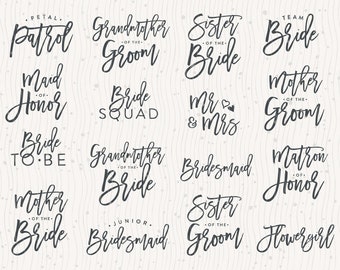 PETAL
Patrol
Grandmother
OF THE
Groom
Sister
OF THE
Bride
TEAM
Bride
Maid
OF
Honor
Bride
SQUAD
Mr
& Mrs
Mother
OF THE
Groom
Bride
TO BE
Grandmother
OF THE
Bride
Bridesmaid
Matron
OF
Honor
Mother
OF THE
Bride
JUNIOR
Bridesmaid
Sister
OF THE
Groom
Flowergirl